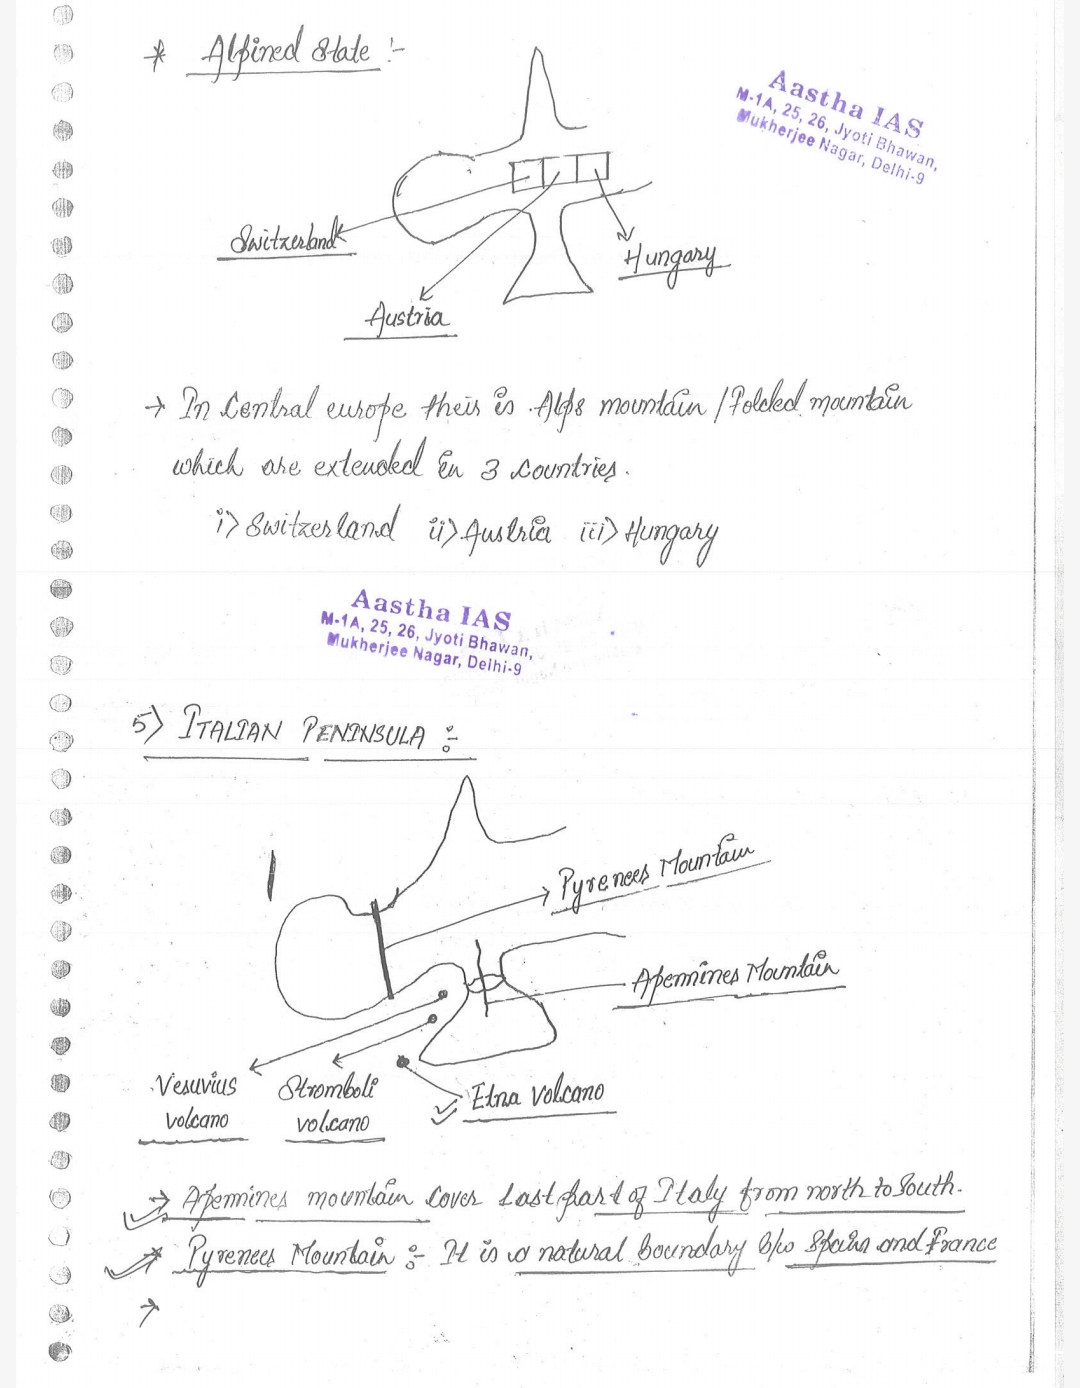 * Alpined State :-
Aastha IAS
M-1A, 25, 26, Jyoti Bhawan,
Mukherjee Nagar, Delhi-9
Switzerland
Hungary
Austria
→ In Central europe theis is Alps mountain / Folded mountain
which are extended in 3 countries.
i) Switzerland ii) Austria iii) Hungary
Aastha IAS
M-1A, 25, 26, Jyoti Bhawan,
Mukherjee Nagar, Delhi-9
5) ITALIAN PENINSULA :-
Pyrenees Mountain
Apennines Mountain
Vesuvius
volcano
Stromboli
volcano
Etna Volcano
→ Apennines mountain cover Last part of Italy from north to South.
* Pyrenees Mountain :- It is a natural boundary b/w Spain and France
→